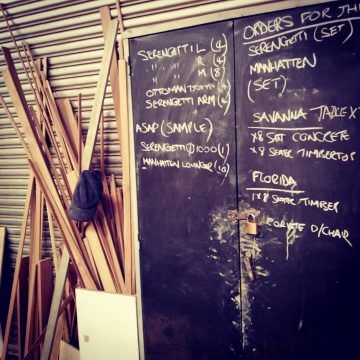 SERENGETTI L (4)
" " R (4)
" " M (8)
OTTOMAN (4)
SERENGETTI ARM (4)
ASAP (SAMPLE)
SERENGETTI Ø1000 (1)
MANHATTAN LOUNGER (10)
ORDERS FOR
SERENGETTI (SET)
MANHATTEN
(SET)
SAVANNA TABLE X
X8 SEAT CONCRETE
X8 SEATER TIMBERTOP
FLORIDA
1X8 SEATER TIMBER
D/CHAIR